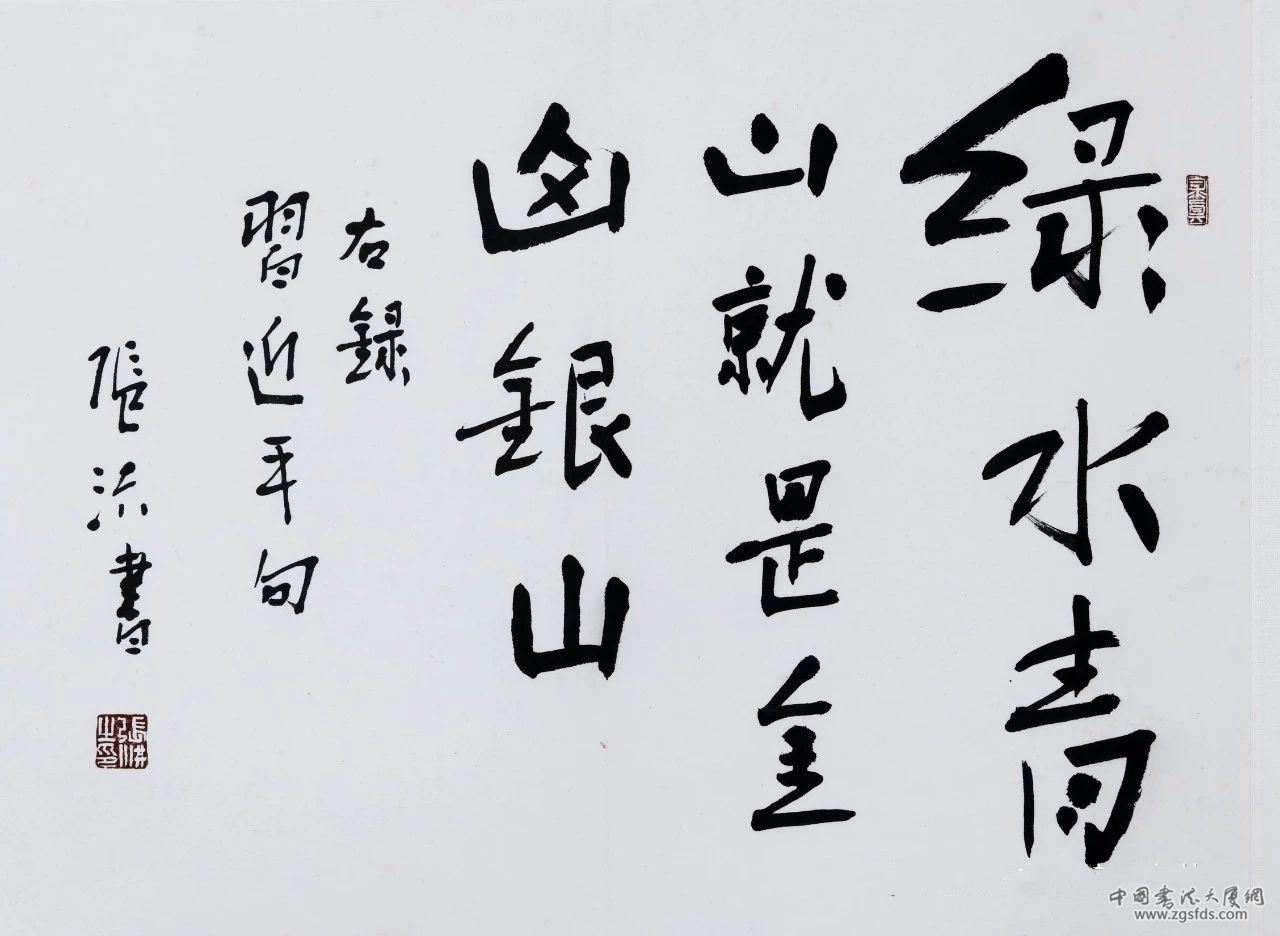 绿水青
山就是金
山銀山
右録
習近平句
張洪書
張洪之印
中國書法大厦網
www.zgsfds.com